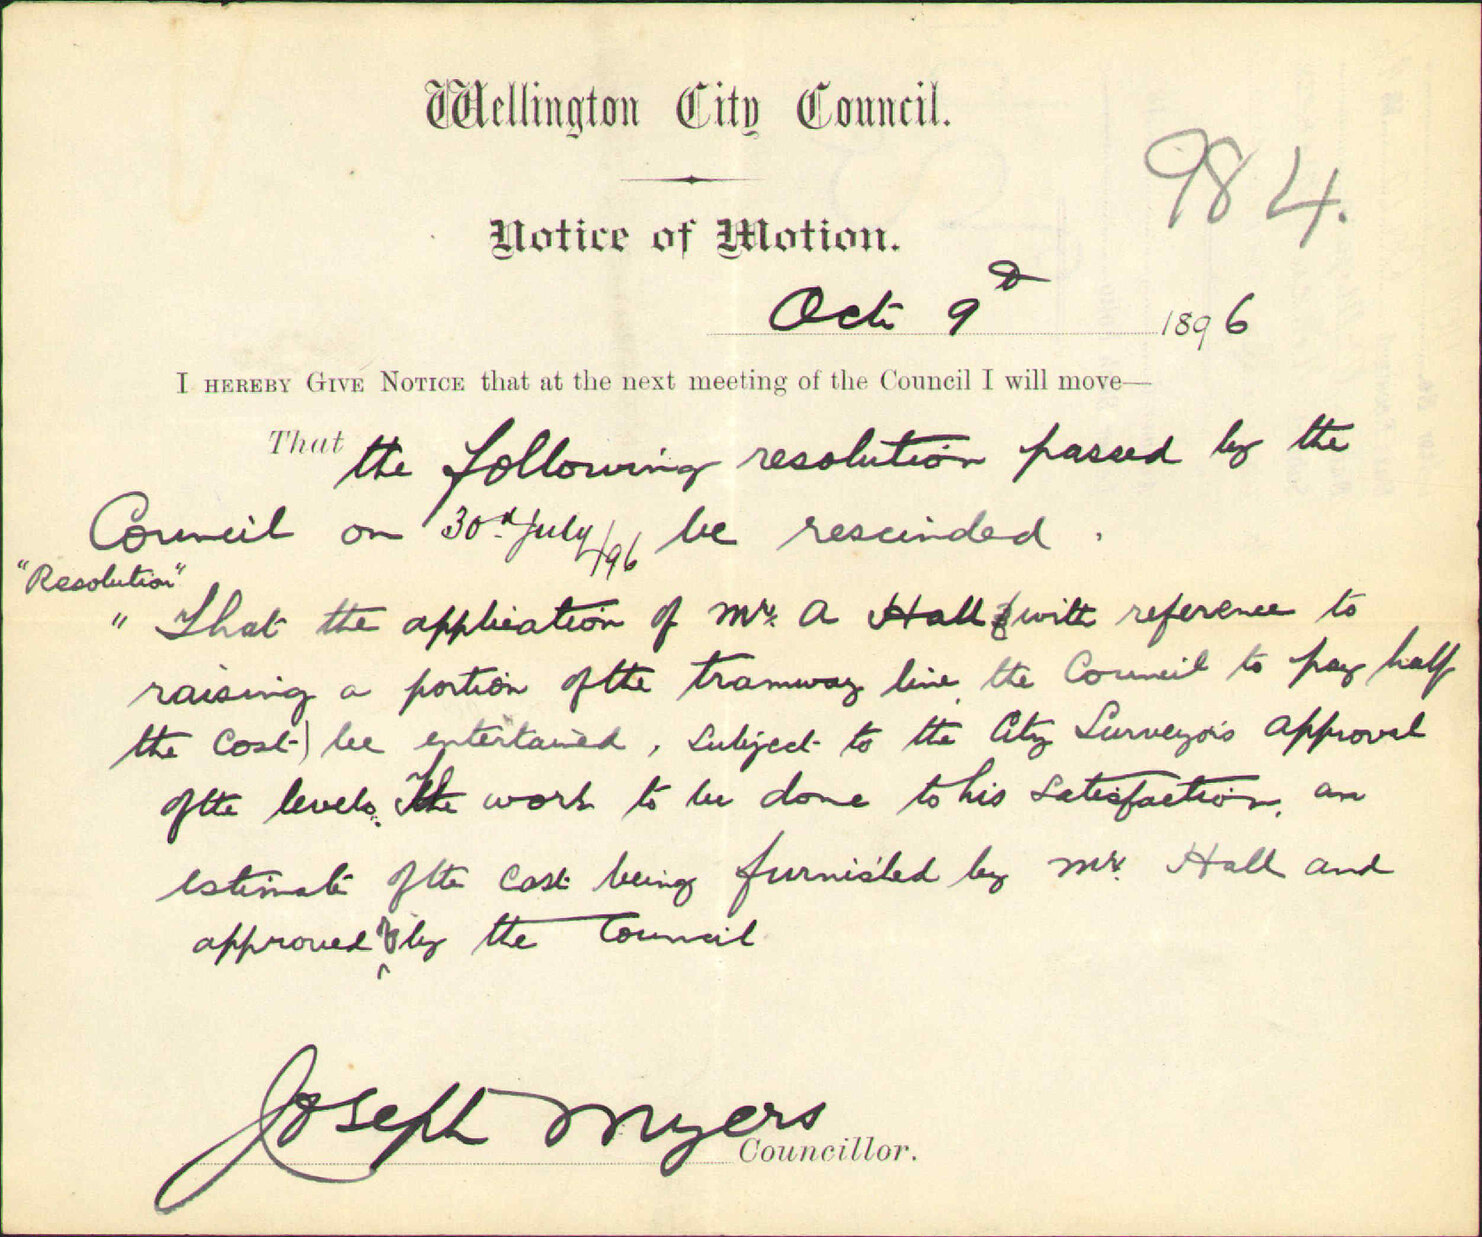 Wellington City Council.
984.
Notice of Motion.
Oct 9th 1896
I HEREBY GIVE NOTICE that at the next meeting of the Council I will move—
That the following resolution passed by the
Council on 30th July/96 be rescinded.
"Resolution"
"That the application of Mr. A Hall (with reference to
raising a portion of the tramway line, the Council to pay half
the cost) be entertained, subject to the City Surveyors approval
of the levels. The work to be done to his satisfaction, an
estimate of the cost being furnished by Mr. Hall and
approved by the Council
Joseph Myers
Councillor.